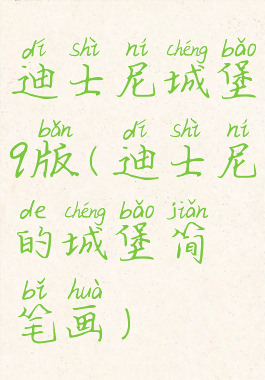 dí shì ní chéng bǎo
迪士尼城堡
bǎn dí shì ní
9版(迪士尼
de chéng bǎo jiǎn
的城堡简
bǐ huà
笔画)